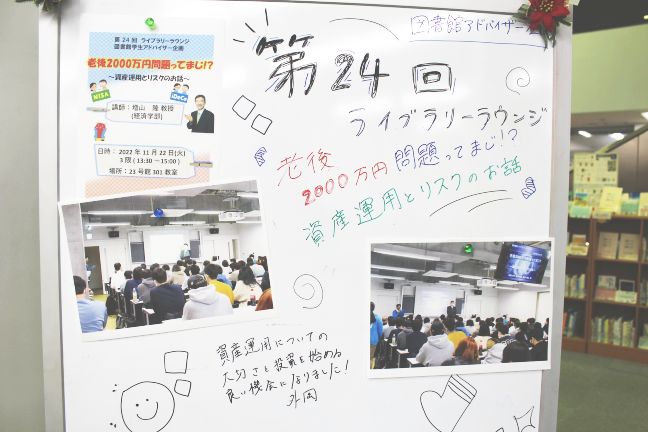 第24回 ライブラリーラウンジ
図書館学生アドバイザー企画
老後2000万円問題ってまじ!?
～資産運用とリスクのお話～
NISA
iDeCo
講師：増山 隆 教授
(経済学部)
日時：2022年11月22日(火)
3限(13:30～15:00)
場所：23号館301教室
図書館アドバイザー
第24回
ライブラリーラウンジ
老後
2000万円問題ってまじ!?
資産運用とリスクのお話
資産運用についての
大切さと投資を始める
良い機会になりました!